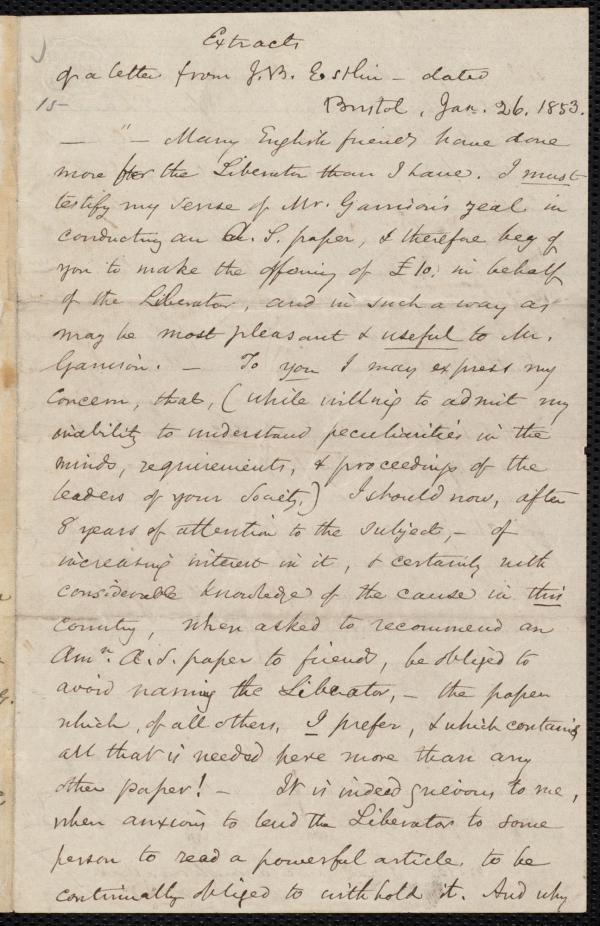 Extracts
of a letter from J.B. Estlin – dated
15–
Bristol, Jan. 26. 1853.
— " — Many English friends have done
more for the Liberator than I have. I must
testify my sense of Mr. Garrison's zeal in
conducting an A. S. paper, & therefore beg of
you to make the offering of £10. in behalf
of the Liberator, and in such a way as
may be most pleasant & useful to Mr.
Garrison. – To you I may express my
concern, that, (while willing to admit my
inability to understand peculiarities in the
minds, requirements, & proceedings of the
leaders of your Society,) I should now, after
8 years of attention to the subject, – of
increasing interest in it, & certainly with
considerable knowledge of the cause in this
country, when asked to recommend an
Amn. A. S. paper to friends, be obliged to
avoid naming the Liberator, – the paper
which, of all others, I prefer, & which contains
all that is needed here more than any
other paper! – It is indeed grievous to me,
when anxious to lend the Liberator to some
person to read a powerful article, to be
continually obliged to withhold it. And why